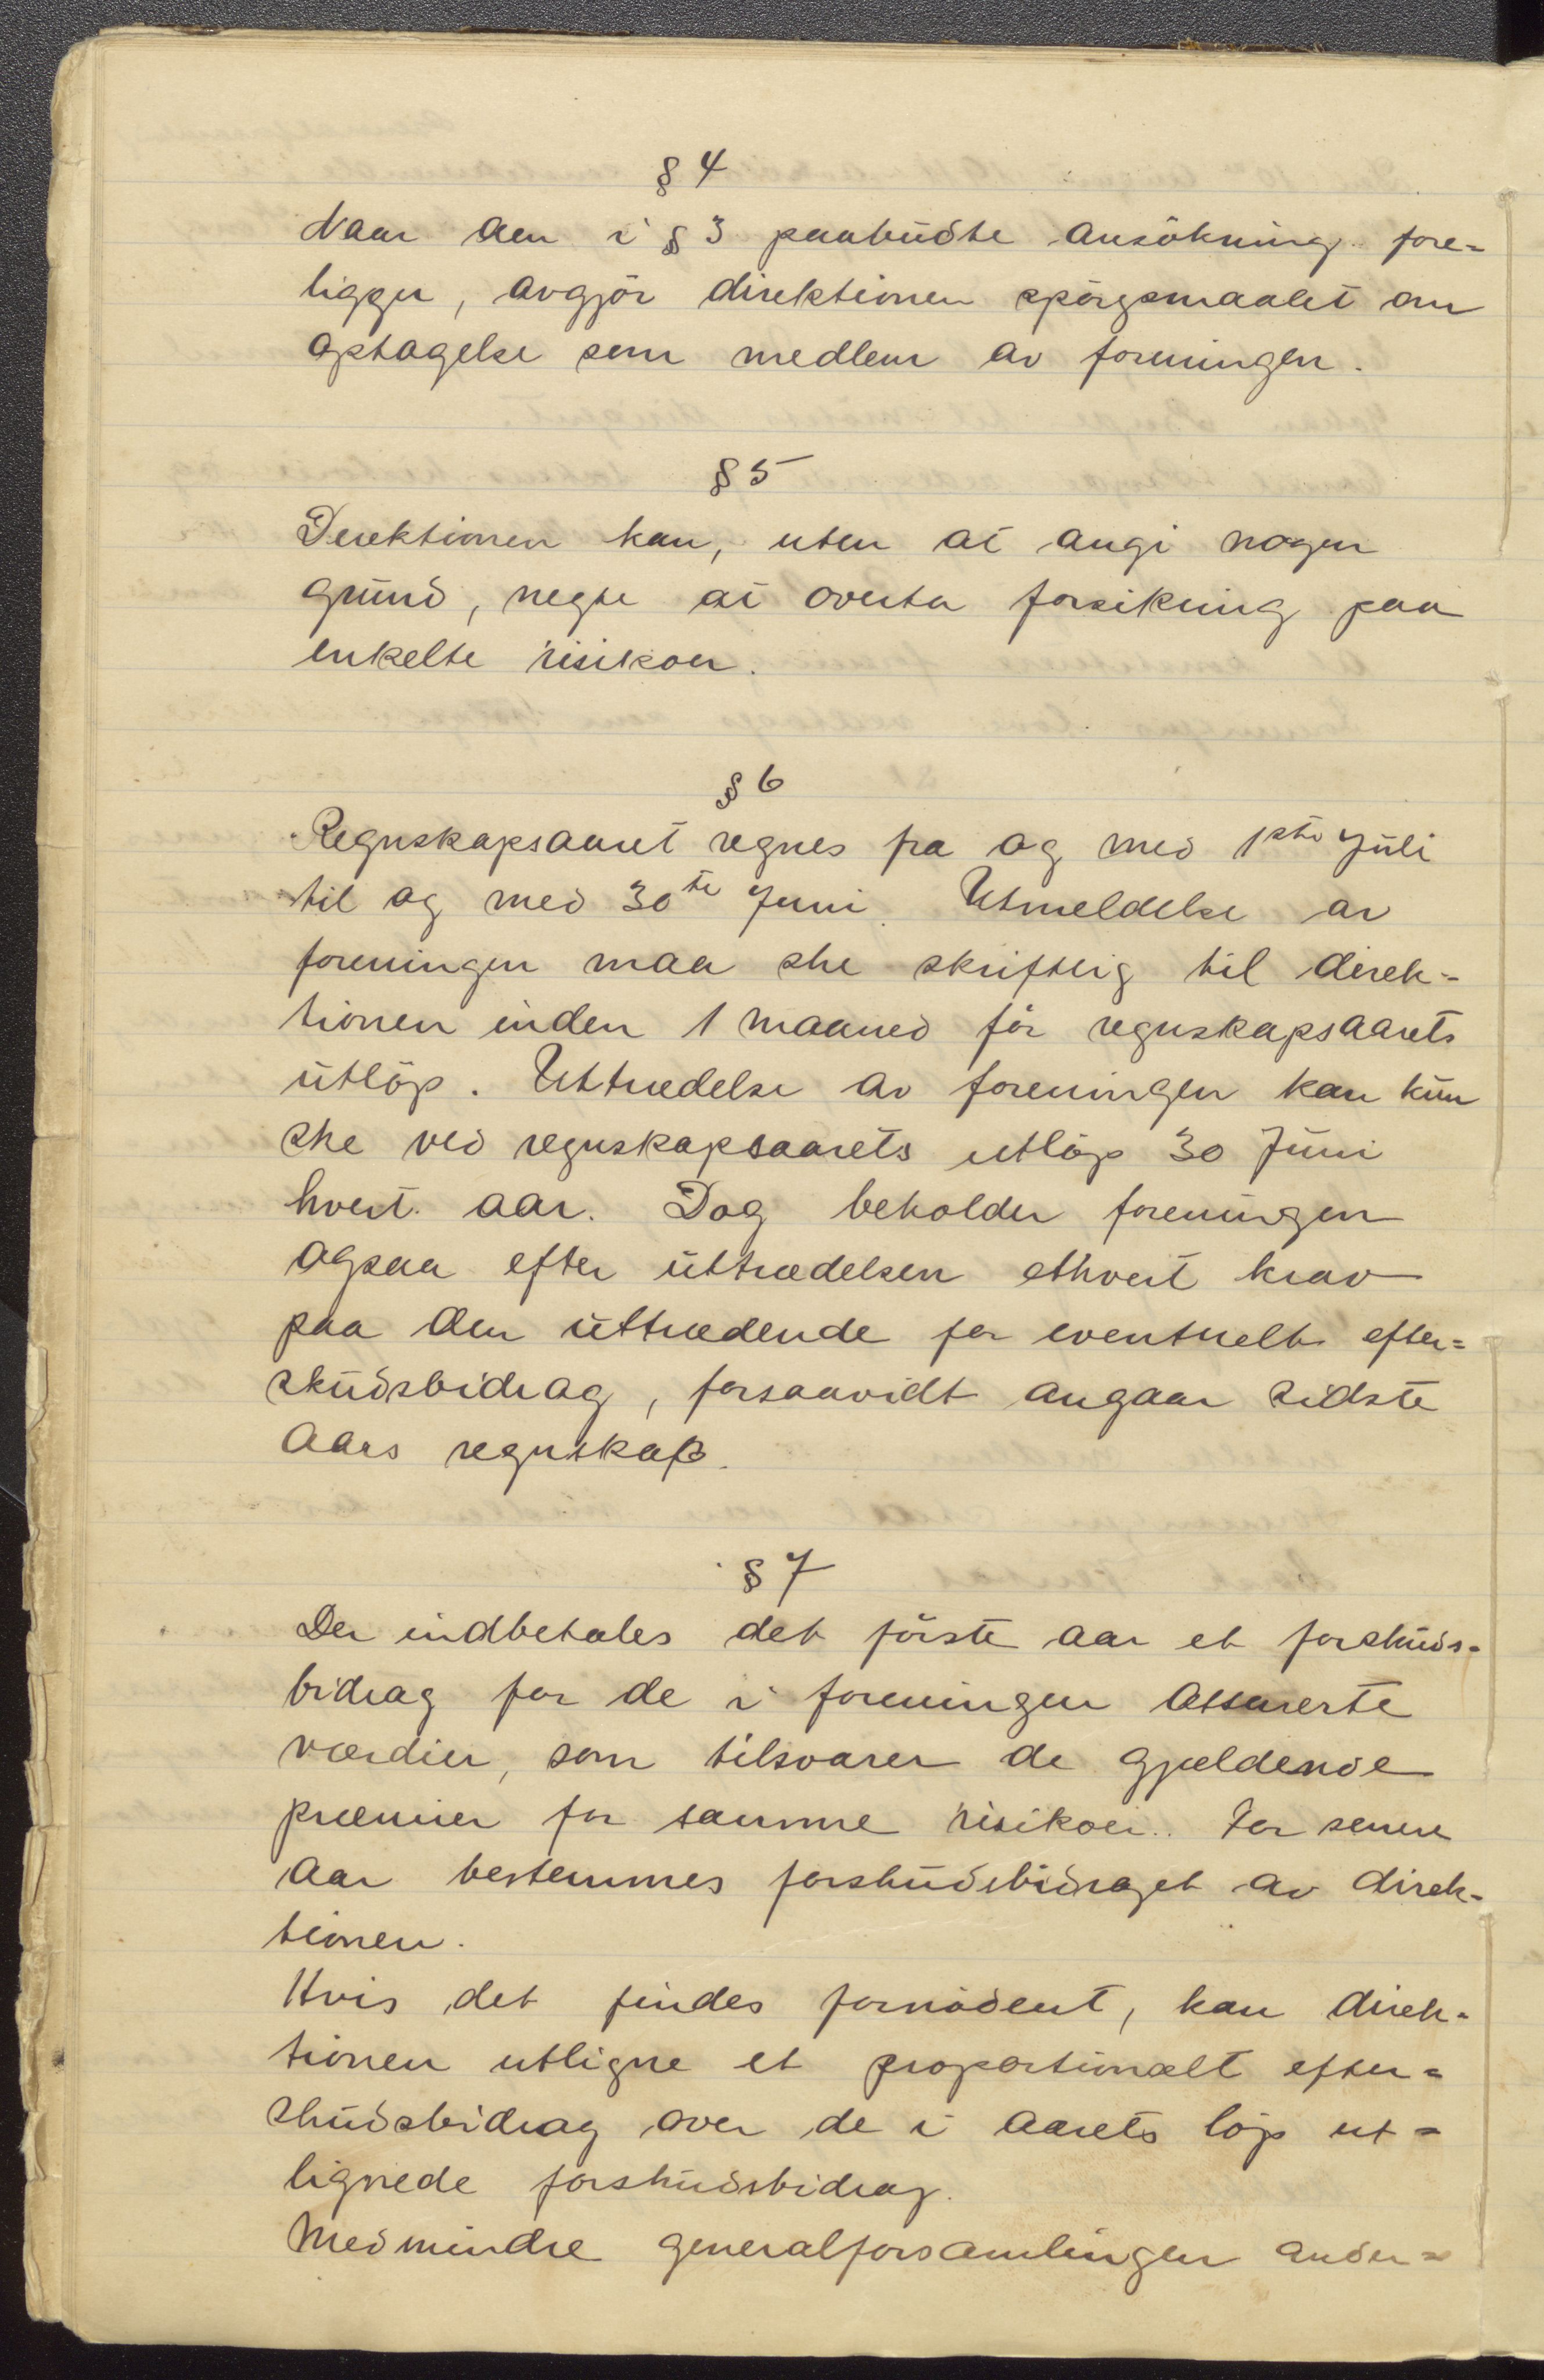 § 4
Naar den i § 3 paabudte ansökning fore=
ligger, avgjör direktionen spörgsmaalet om
optagelse som medlem av foreningen.
§ 5
Direktionen kan, uten at angi nogen
grund, negte at overta forsikring paa
enkelte risikoer.
§ 6
Regnskapsaaret regnes fra og med 1ste Juli
til og med 30te Juni. Utmeldelse av
foreningen maa ske skriftlig til direk=
tionen inden 1 maaned för regnskapsaarets
utlöp. Uttrædelse av foreningen kan kun
ske ved regnskapsaarets utlöp 30 Juni
hvert aar. Dog beholder foreningen
ogsaa efter uttrædelsen ethvert krav
paa den uttrædende for eventuelt efter=
skudsbidrag, forsaavidt angaar sidste
aars regnskap.
§ 7
Der indbetales det förste aar et forskuds-
bidrag for de i foreningen assurerte
værdier, som tilsvarer de gjældende
præmier for samme risikoer. For senere
aar bestemmes forskudsbidraget av direk-
tionen.
Hvis det findes fornödent, kan direk-
tionen utligne et proportionalt efter=
skudsbidrag over de i aarets löp ut=
lignede forskudsbidrag.
Medmindre generalforsamlingen ander=